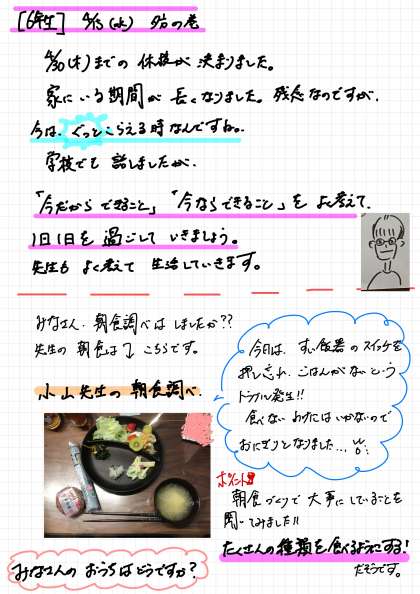 [6年生] 4/15(水) 夕方の巻
4/30(木)までの 休校が 決まりました。
家にいる期間が 長くなりました。残念なのですが、
今は、ぐっとこらえる時なんですね。
学校でも 話しましたが、
「今だから できること」「今ならできること」を よく考えて、
1日1日を 過ごして いきましょう。
先生も よく考えて 生活していきます。
みなさん、朝食調べは しましたか??
先生の 朝食は こちらです。
小山先生の 朝食調べ
今日は、すい飯器のスイッチを
押し忘れ、ごはんがないという
トラブル発生!!
食べないわけにはいかないので
おにぎりとなりました...
ポイント!!
朝食づくりで 大事にしていることを
聞いてみました!!
たくさんの種類を食べるようにする!
だそうです。
みなさんの おうちは どうですか?